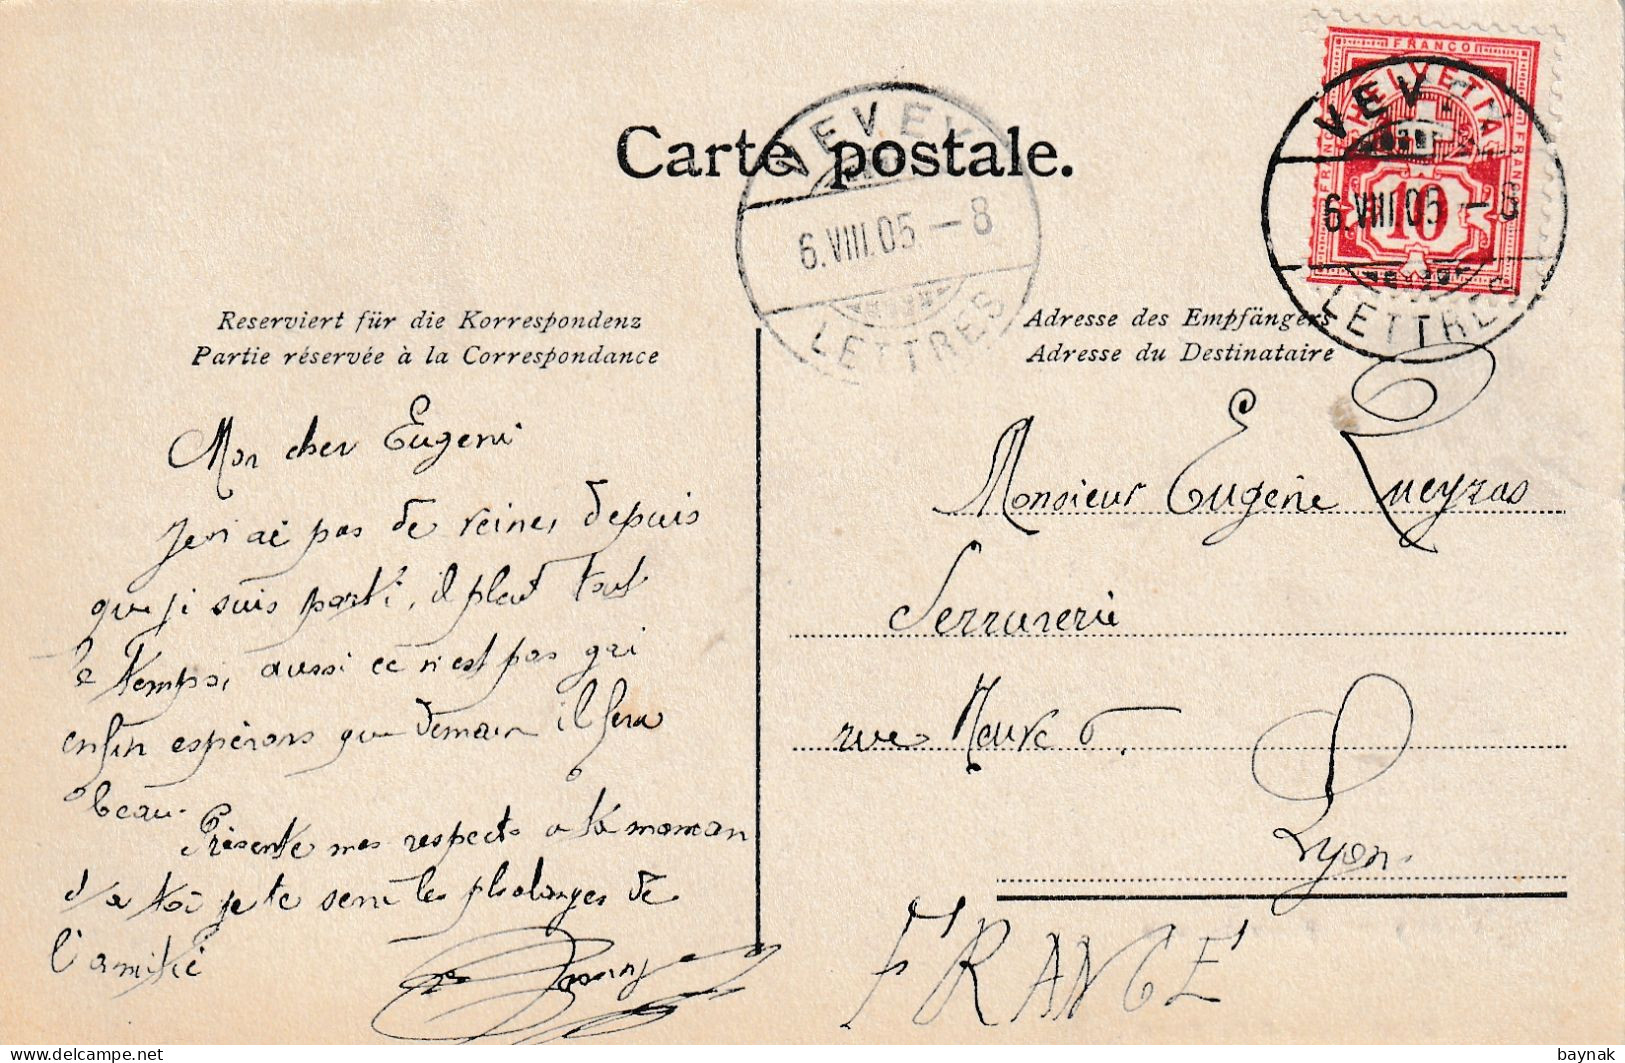 Carte postale.
VEVEY
6.VIII.05 - 8
LETTRES
FRANCO
HELVETIA
FRANCO
FRANCO
10
VEV
6.VIII.05 - 8
LETTRES
Reserviert für die Korrespondenz
Partie réservée à la Correspondance
Adresse des Empfängers
Adresse du Destinataire
Mon cher Eugene
Je n'ai pas de veine, depuis
que je suis parti, il pleut tout
le temps, aussi ce n'est pas gai
enfin espérons que demain il fera
beau.
Présente mes respects a ta maman
et a toi je te serre les phalanges de
l'amitié
Monsieur Eugène Queyras
Serrurerie
rue Neuve 6.
Lyon.
FRANCE
baynak